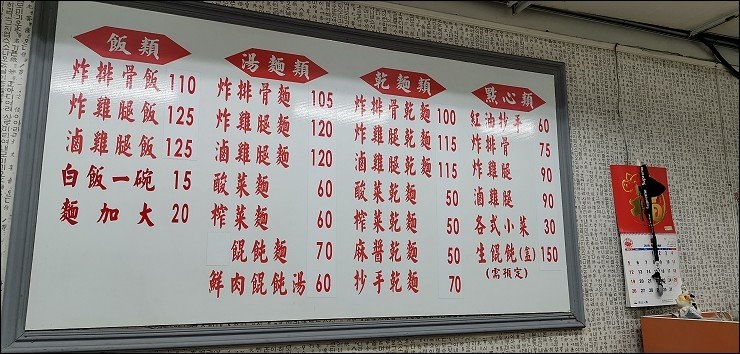 飯類
炸排骨飯 110
炸雞腿飯 125
滷雞腿飯 125
白飯一碗 15
麵加大 20
湯麵類
炸排骨麵 105
炸雞腿麵 120
滷雞腿麵 120
酸菜麵 60
榨菜麵 60
餛飩麵 70
鮮肉餛飩湯 60
乾麵類
炸排骨乾麵 100
炸雞腿乾麵 115
滷雞腿乾麵 115
酸菜乾麵 50
榨菜乾麵 50
麻醬乾麵 50
抄手乾麵 70
點心類
紅油抄手 60
炸排骨 75
炸雞腿 90
滷雞腿 90
各式小菜 30
生餛飩(盒) 150
(需預定)